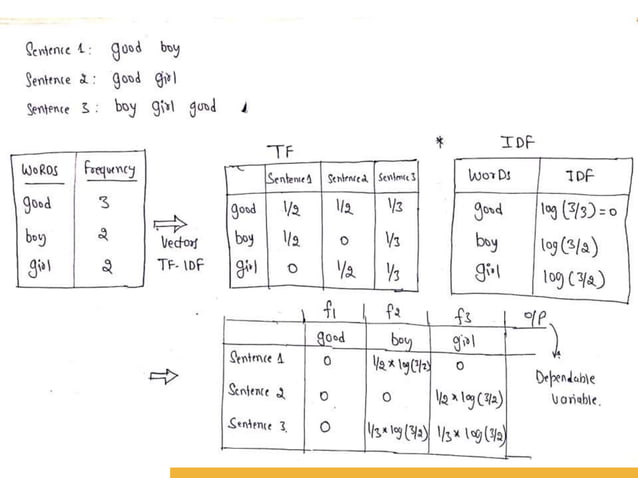 Sentence 1: good boy
Sentence 2: good girl
Sentence 3: boy girl good
TF
* IDF
WORDS Frequency
good 3
boy 2
girl 2
Vectors
TF-IDF
Sentence1 Sentence2 Sentence3
good 1/2 1/2 1/3
boy 1/2 0 1/3
girl 0 1/2 1/3
WORDS IDF
good log (3/3)=0
boy log(3/2)
girl log(3/2)
f1 f2 f3 O/P
good boy girl
Sentence 1 0 1/2 * log(3/2) 0
Sentence 2 0 0 1/2 * log(3/2)
Sentence 3. 0 1/3 * log(3/2) 1/3 * log(3/2)
Dependable
Variable.